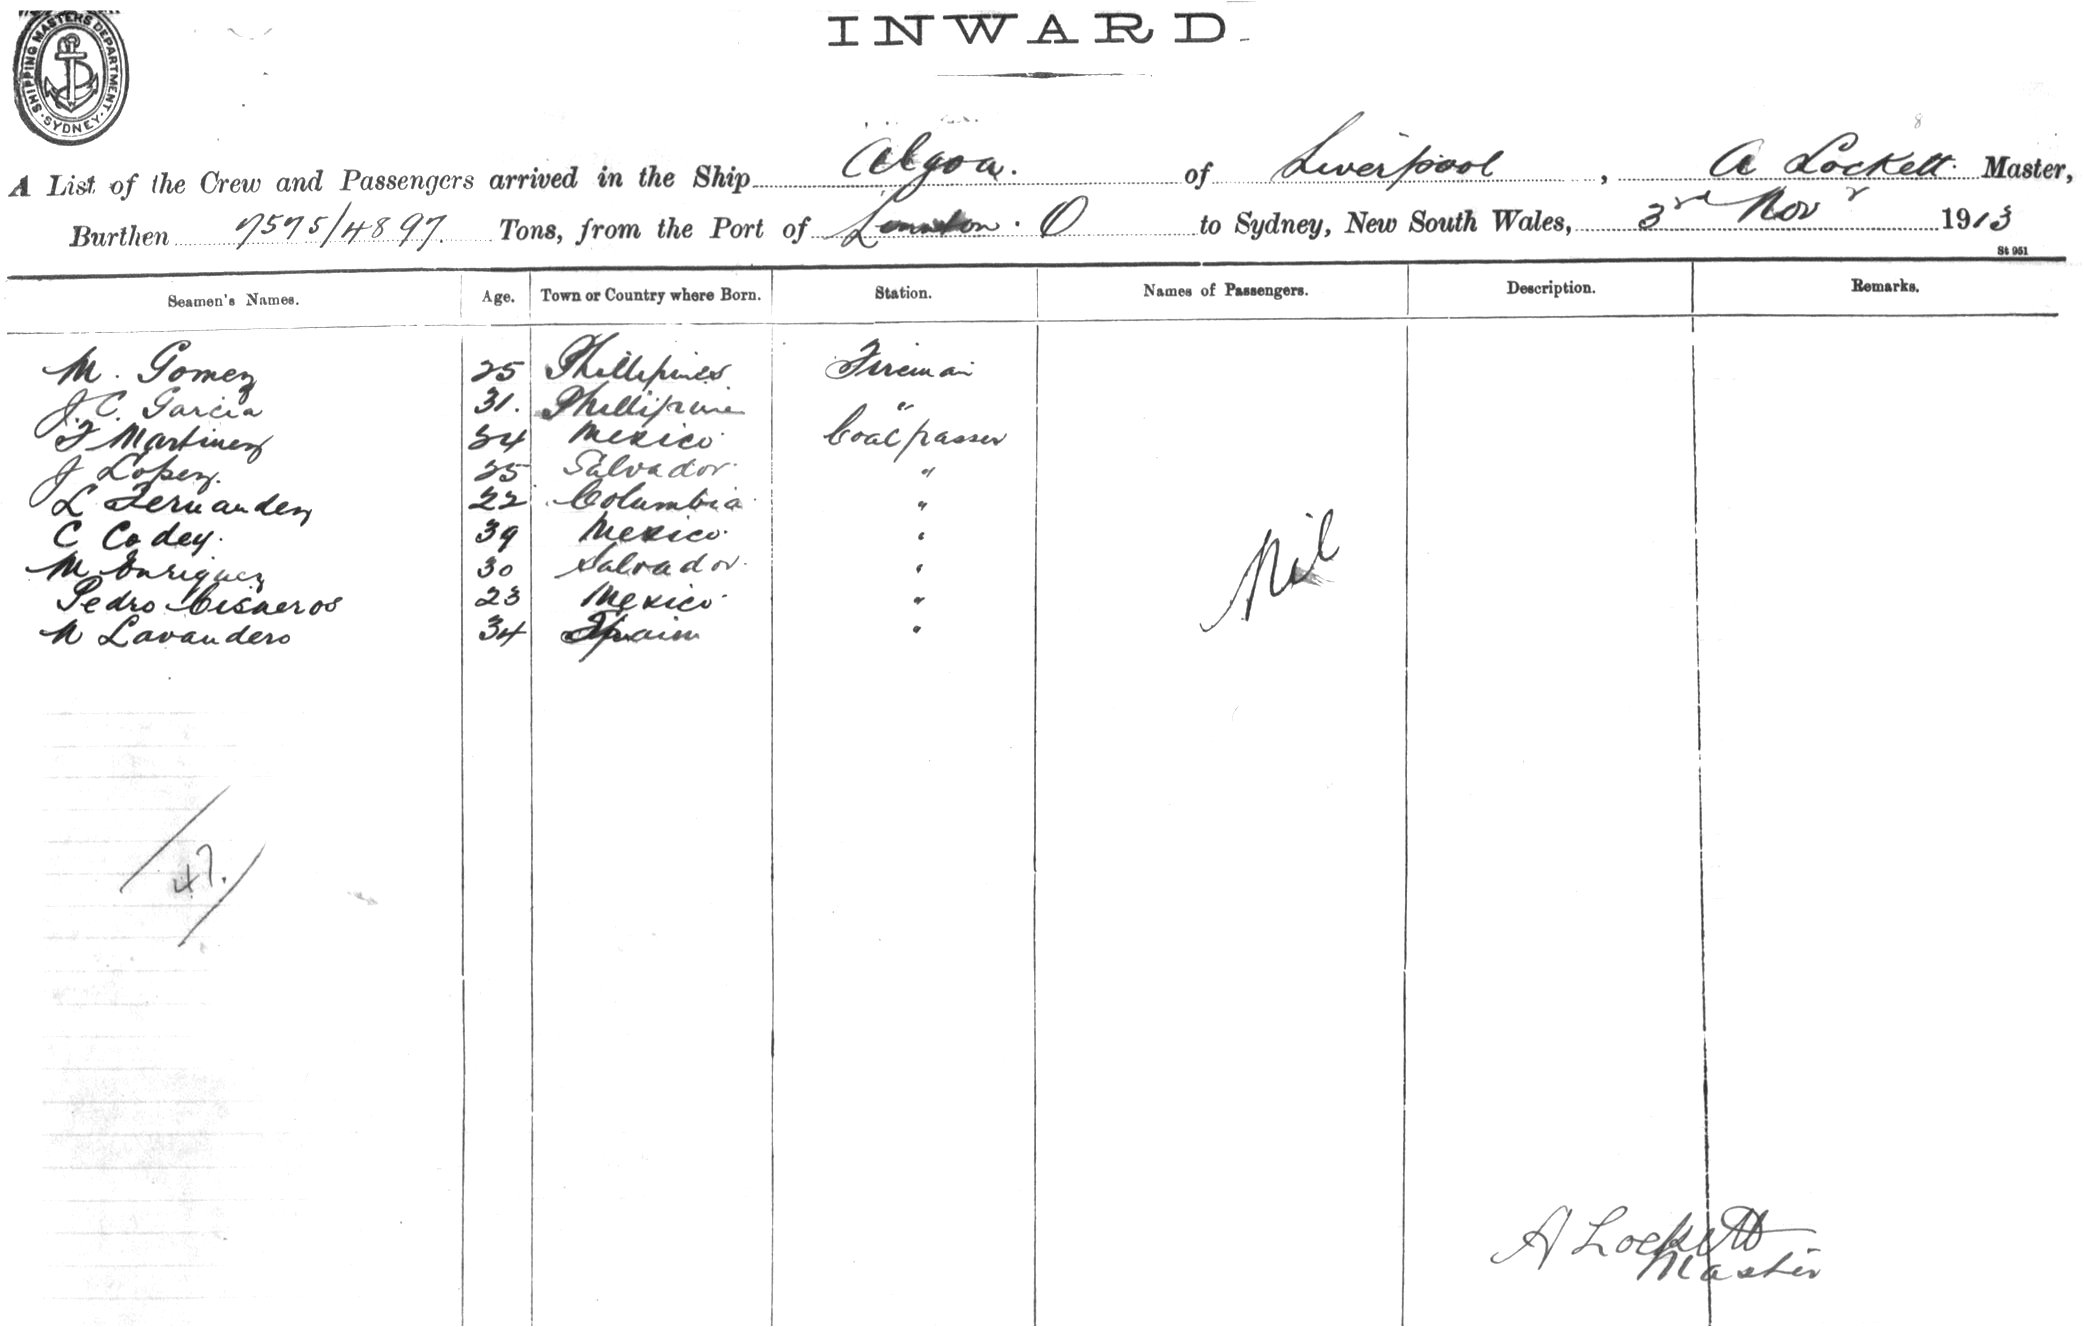 SHIPPING MASTERS DEPARTMENT
SYDNEY
INWARD
A List of the Crew and Passengers arrived in the Ship Algoa. of Liverpool, A Lockett. Master,
Burthen 7575/4897. Tons, from the Port of to Sydney, New South Wales, 3rd Novr 1913
St 951
Seamen's Names. Age. Town or Country where Born. Station. Names of Passengers. Description. Remarks.
M. Gomez 25 Phillipines Fireman
J. C. Garcia 31. Phillipine "
F Martinez 34 Mexico Coal passer
J Lopez. 25 Salvador "
L Fernandez 22 Columbia "
C Codey. 39 Mexico "
M Enriquez 30 Salvador "
Pedro Cisneros 23 Mexico "
N Lavandero 34 Spain "
Nil
47.
A Lockett
Master